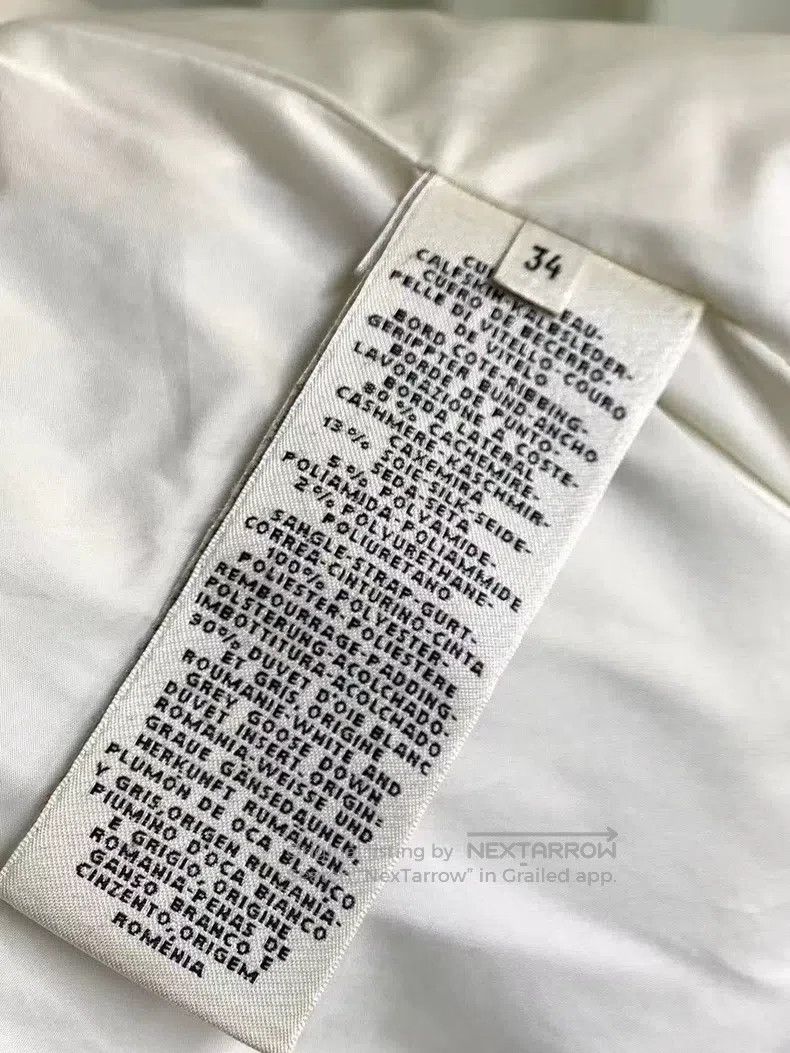 34
CALFSKIN-KALBSLEDER-
CUERO DE BECERRO-
PELLE DI VITELLO-COURO
DE VITELO
BORD COTE-RIBBING-
GERIPPTER BUND-ANCHO
BORDE DE PUNTO-
LAVORAZIONE A COSTE-
BORDA LATERAL
80 % CACHEMIRE-
CASHMERE-KASCHMIR-
CAXEMIRA
13 % SOIE-SILK-SEIDE-
SEDA-SETA
5 % POLYAMIDE-
POLIAMIDA-POLIAMMIDE
2 % POLYURETHANE-
POLIURETANO
SANGLE-STRAP-GURT-
CORREA-CINTURINO-CINTA
100% POLYESTER-
POLIESTER-POLIESTERE
REMBOURRAGE-PADDING-
POLSTERUNG-ACOLCHADO-
IMBOTTITURA-ACOLCHADO
90% DUVET D'OIE BLANC
ET GRIS, ORIGINE
ROUMANIE-WHITE AND
GREY GOOSE DOWN
DUVET INSERT, ORIGIN:
ROMANIA-WEISSE UND
GRAUE GÄNSEDAUNEN,
HERKUNFT RUMÄNIEN-
PLUMÓN DE OCA BLANCO
Y GRIS, ORIGEN RUMANIA-
PIUMINO D'OCA BIANCO
E GRIGIO, ORIGINE
ROMANIA-PENAS DE
GANSO BRANCO E
CINZENTO, ORIGEM
ROMÉNIA
sting by NEXTARROW
"NexTarrow" in Grailed app.